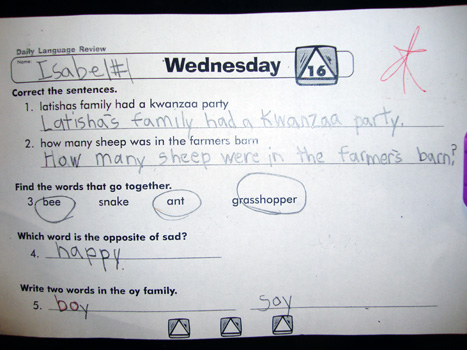 Daily Language Review
Name: Isabel #1 Wednesday 16
Correct the sentences.
1. latishas family had a kwanzaa party
Latisha's family had a Kwanzaa party.
2. how many sheep was in the farmers barn
How many sheep were in the farmer's barn?
Find the words that go together.
3. bee snake ant grasshopper
Which word is the opposite of sad?
4. happy.
Write two words in the oy family.
5. boy soy